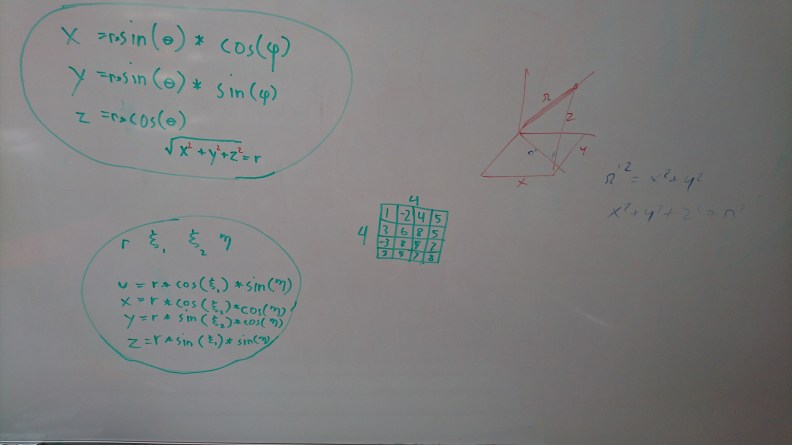 x = r*sin(θ) * cos(φ)
y = r*sin(θ) * sin(φ)
z = r*cos(θ)
√x²+y²+z² = r
r ξ₁ ξ₂ η
u = r*cos(ξ₁)*sin(η)
x = r*cos(ξ₂)*cos(η)
y = r*sin(ξ₂)*cos(η)
z = r*sin(ξ₁)*sin(η)
4
4
1 -2 4 5
3 6 8 5
-3 8
r
z
y
r'
x
r'² = x²+y²
x²+y²+z² = r²